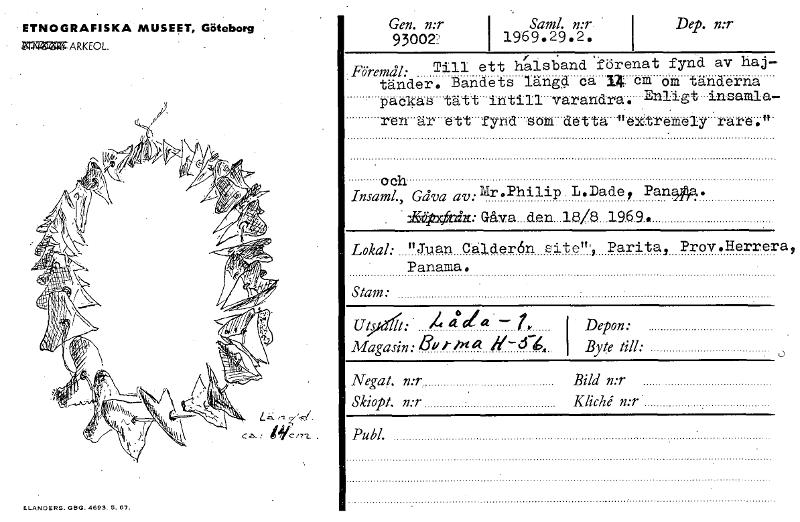 ETNOGRAFISKA MUSEET, Göteborg
ARKEOL.
Längd.
ca: 14 cm.
ELANDERS. GBG. 4693. S. 67.
Gen. n:r Saml. n:r Dep. n:r
93002 1969.29.2.
Föremål: Till ett halsband förenat fynd av haj-
tänder. Bandets längd ca 14 cm om tänderna
packas tätt intill varandra. Enligt insamla-
ren är ett fynd som detta "extremely rare."
och
Insaml., Gåva av: Mr.Philip L.Dade, Panama.
Köpt från: Gåva den 18/8 1969.
Lokal: "Juan Calderón site", Parita, Prov.Herrera,
Panama.
Stam:
Utställt: Låda-1. Depon:
Magasin: Burma H-56. Byte till:
Negat. n:r Bild n:r
Skiopt. n:r Kliché n:r
Publ.